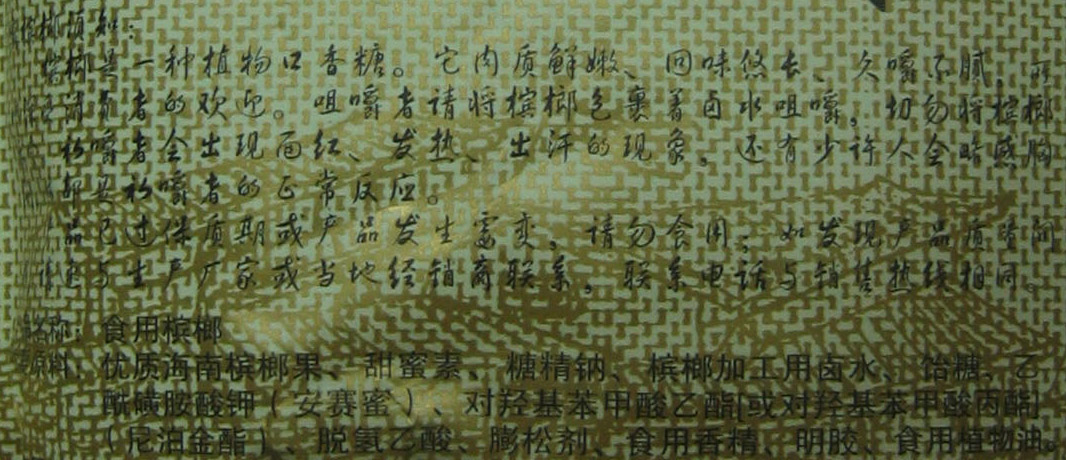 榔须知:
槟榔是一种植物口香糖。它肉质鲜嫩、回味悠长、久嚼不腻,所
消费者的欢迎。咀嚼者请将槟榔包裹着卤水咀嚼,切勿将槟榔
初嚼者会出现面红、发热、出汗的现象。还有少许人会略感胸
都是初嚼者的正常反应。
品已过保质期或产品发生霉变,请勿食用;如发现产品质量问
与生产厂家或当地经销商联系。联系电话与销售热线相同。
名称:食用槟榔
原料:优质海南槟榔果、甜蜜素、糖精钠、槟榔加工用卤水、饴糖、乙
酰磺胺酸钾(安赛蜜)、对羟基苯甲酸乙酯[或对羟基苯甲酸丙酯]
(尼泊金酯)、脱氢乙酸、膨松剂、食用香精、明胶、食用植物油。